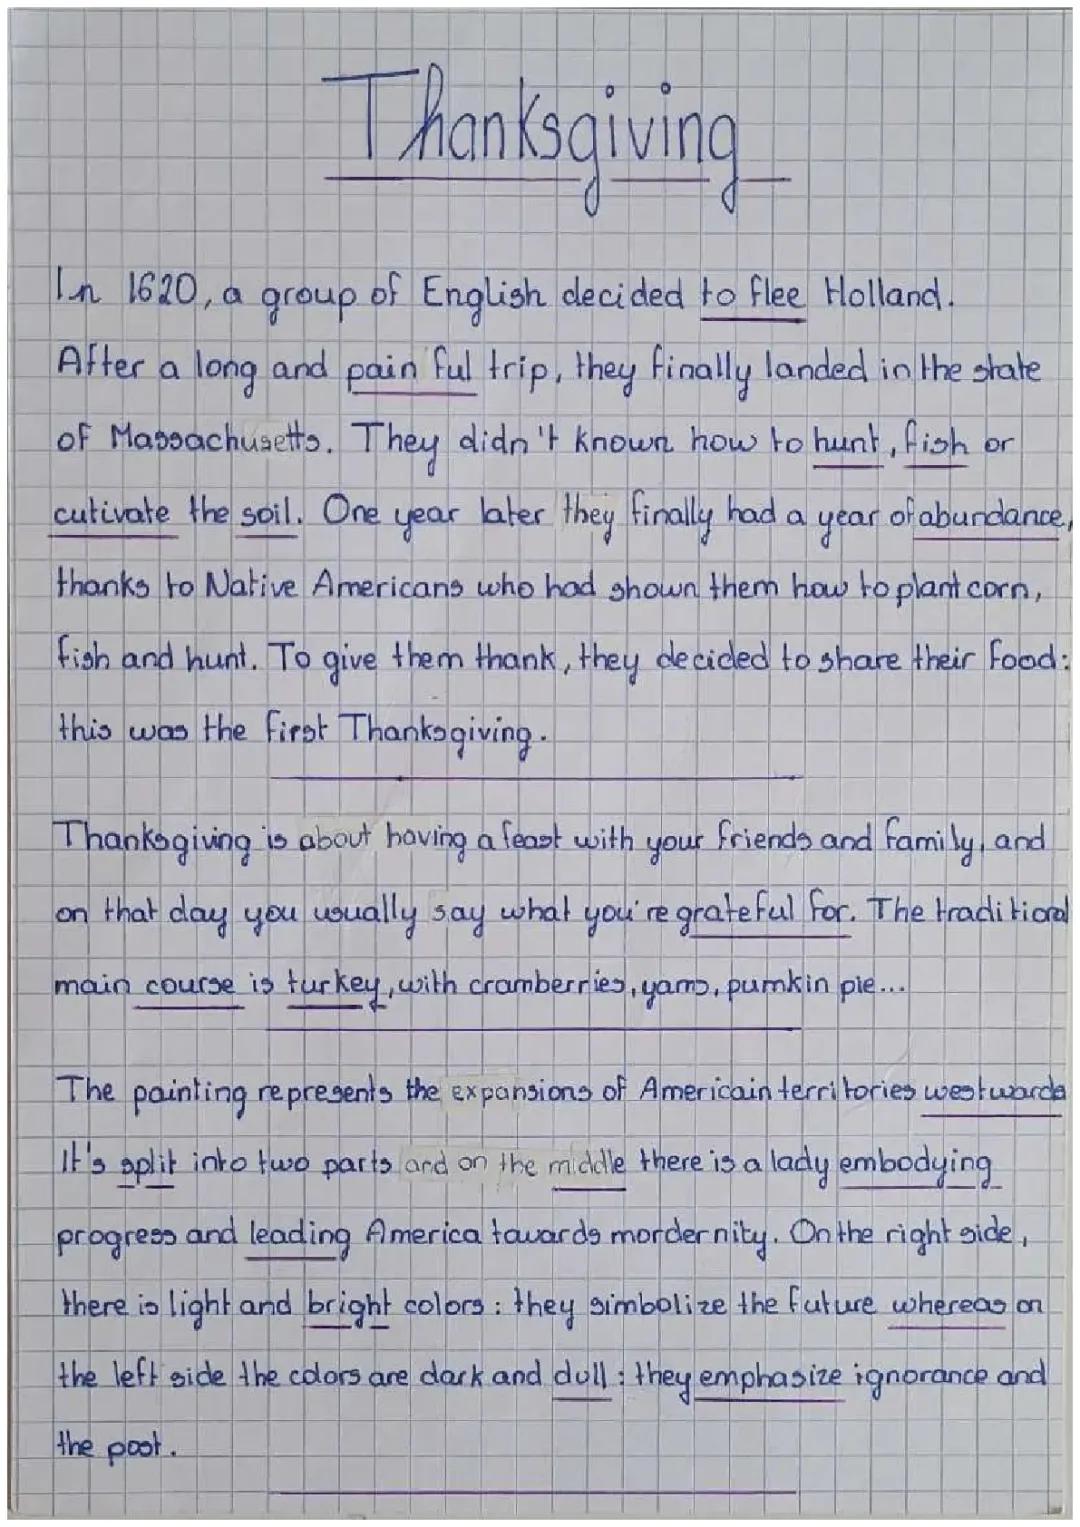 Thanksgiving
In 1620, a group of English decided to flee Holland.
After a long and painful trip, they finally landed in the state
of Massachusetts. They didn't known how to hunt, fish or
cutivate the soil. One year later they finally had a year of abundance,
thanks to Native Americans who had shown them how to plant corn,
fish and hunt. To give them thank, they decided to share their food:
this was the first Thanksgiving.
Thanksgiving is about having a feast with your friends and family, and
on that day you usually say what you're grateful for. The traditional
main course is turkey, with cramberries, yams, pumkin pie...
The painting represents the expansions of Americain territories westwards
It's split into two parts and on the middle there is a lady embodying
progress and leading America towards mordernity. On the right side,
there is light and bright colors: they simbolize the future whereas on
the left side the colors are dark and dull: they emphasize ignorance and
the past.